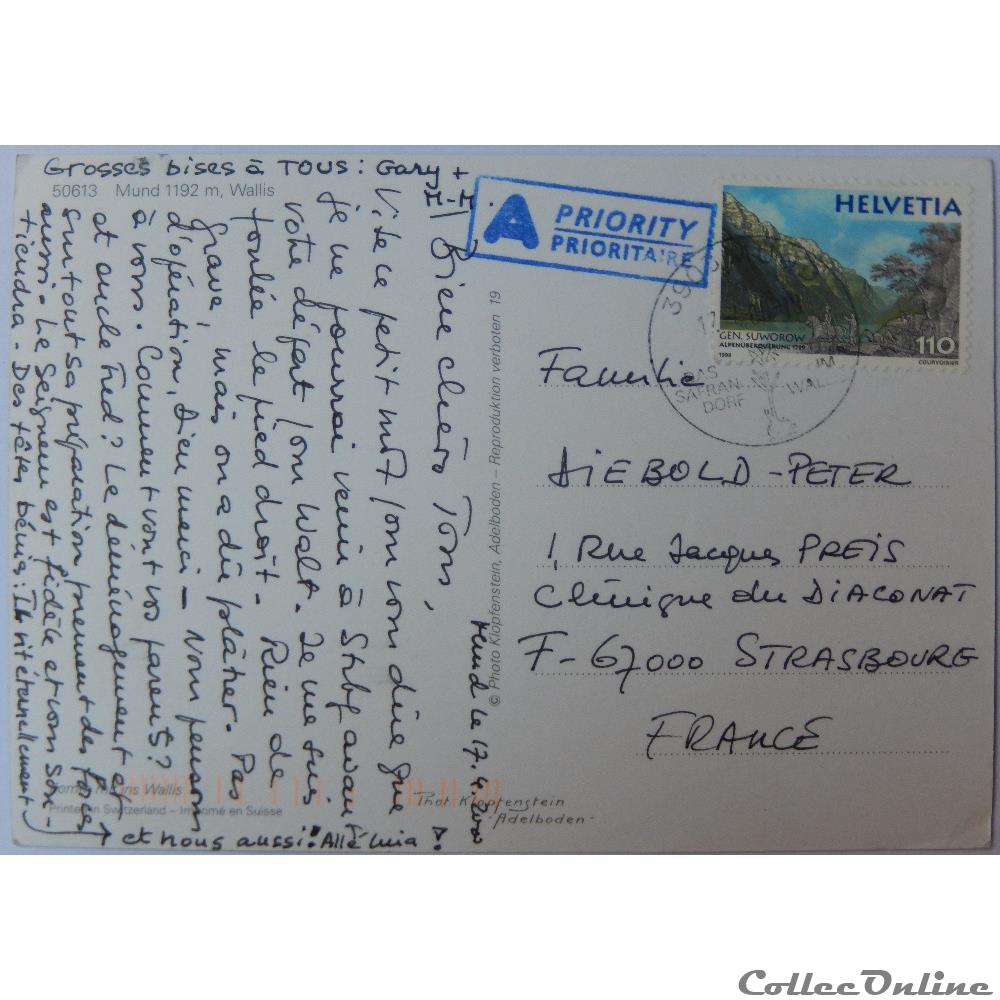 Grosses bises à TOUS : Gary +
M-M.
50613 Mund 1192 m, Wallis
Mund le 17.4.2000
Bien chers Tous,
Vite ce petit mot pour vous dire que
je ne pourrai venir à Stbg avant
votre départ pour Walt. Je me suis
foulée le pied droit. Rien de
grave, mais on a dû plâtrer. Pas
d'opération, Dieu merci - Nous pensons
à vous. Comment vont vos parents?
et oncle Fred? Le déménagement et
surtout sa préparation prennent des forces
aussi. Le Seigneur est fidèle et vous sou-
tiendra. Des têtes bénis: Il vit éternellement
et nous aussi! Alléluia!
© Photo Klopfenstein, Adelboden – Reproduktion verboten 19
Wallis
Printed in Switzerland – Imprimé en Suisse
Phot Klopfenstein
"Adelboden"
A PRIORITY
PRIORITAIRE
HELVETIA
GEN. SUWOROW
ALPENÜBERQUERUNG 1799
1999
110
COURVOISIER
390
17
DAS
SAFRAN
DORF
IM
WALLIS
Familie
DIEBOLD-PETER
1, Rue Jacques PREIS
Clinique du DIACONAT
F-67000 STRASBOURG
FRANCE
CollecOnline